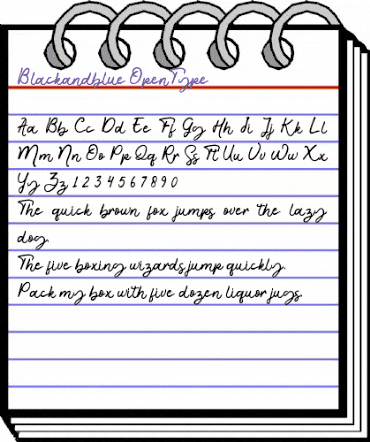 Blackandblue OpenType
Aa Bb Cc Dd Ee Ff Gg Hh Ii Jj Kk Ll
Mm Nn Oo Pp Qq Rr Ss Tt Uu Vv Ww Xx
Yy Zz 1 2 3 4 5 6 7 8 9 0
The quick brown fox jumps over the lazy
dog.
The five boxing wizards jump quickly.
Pack my box with five dozen liquor jugs